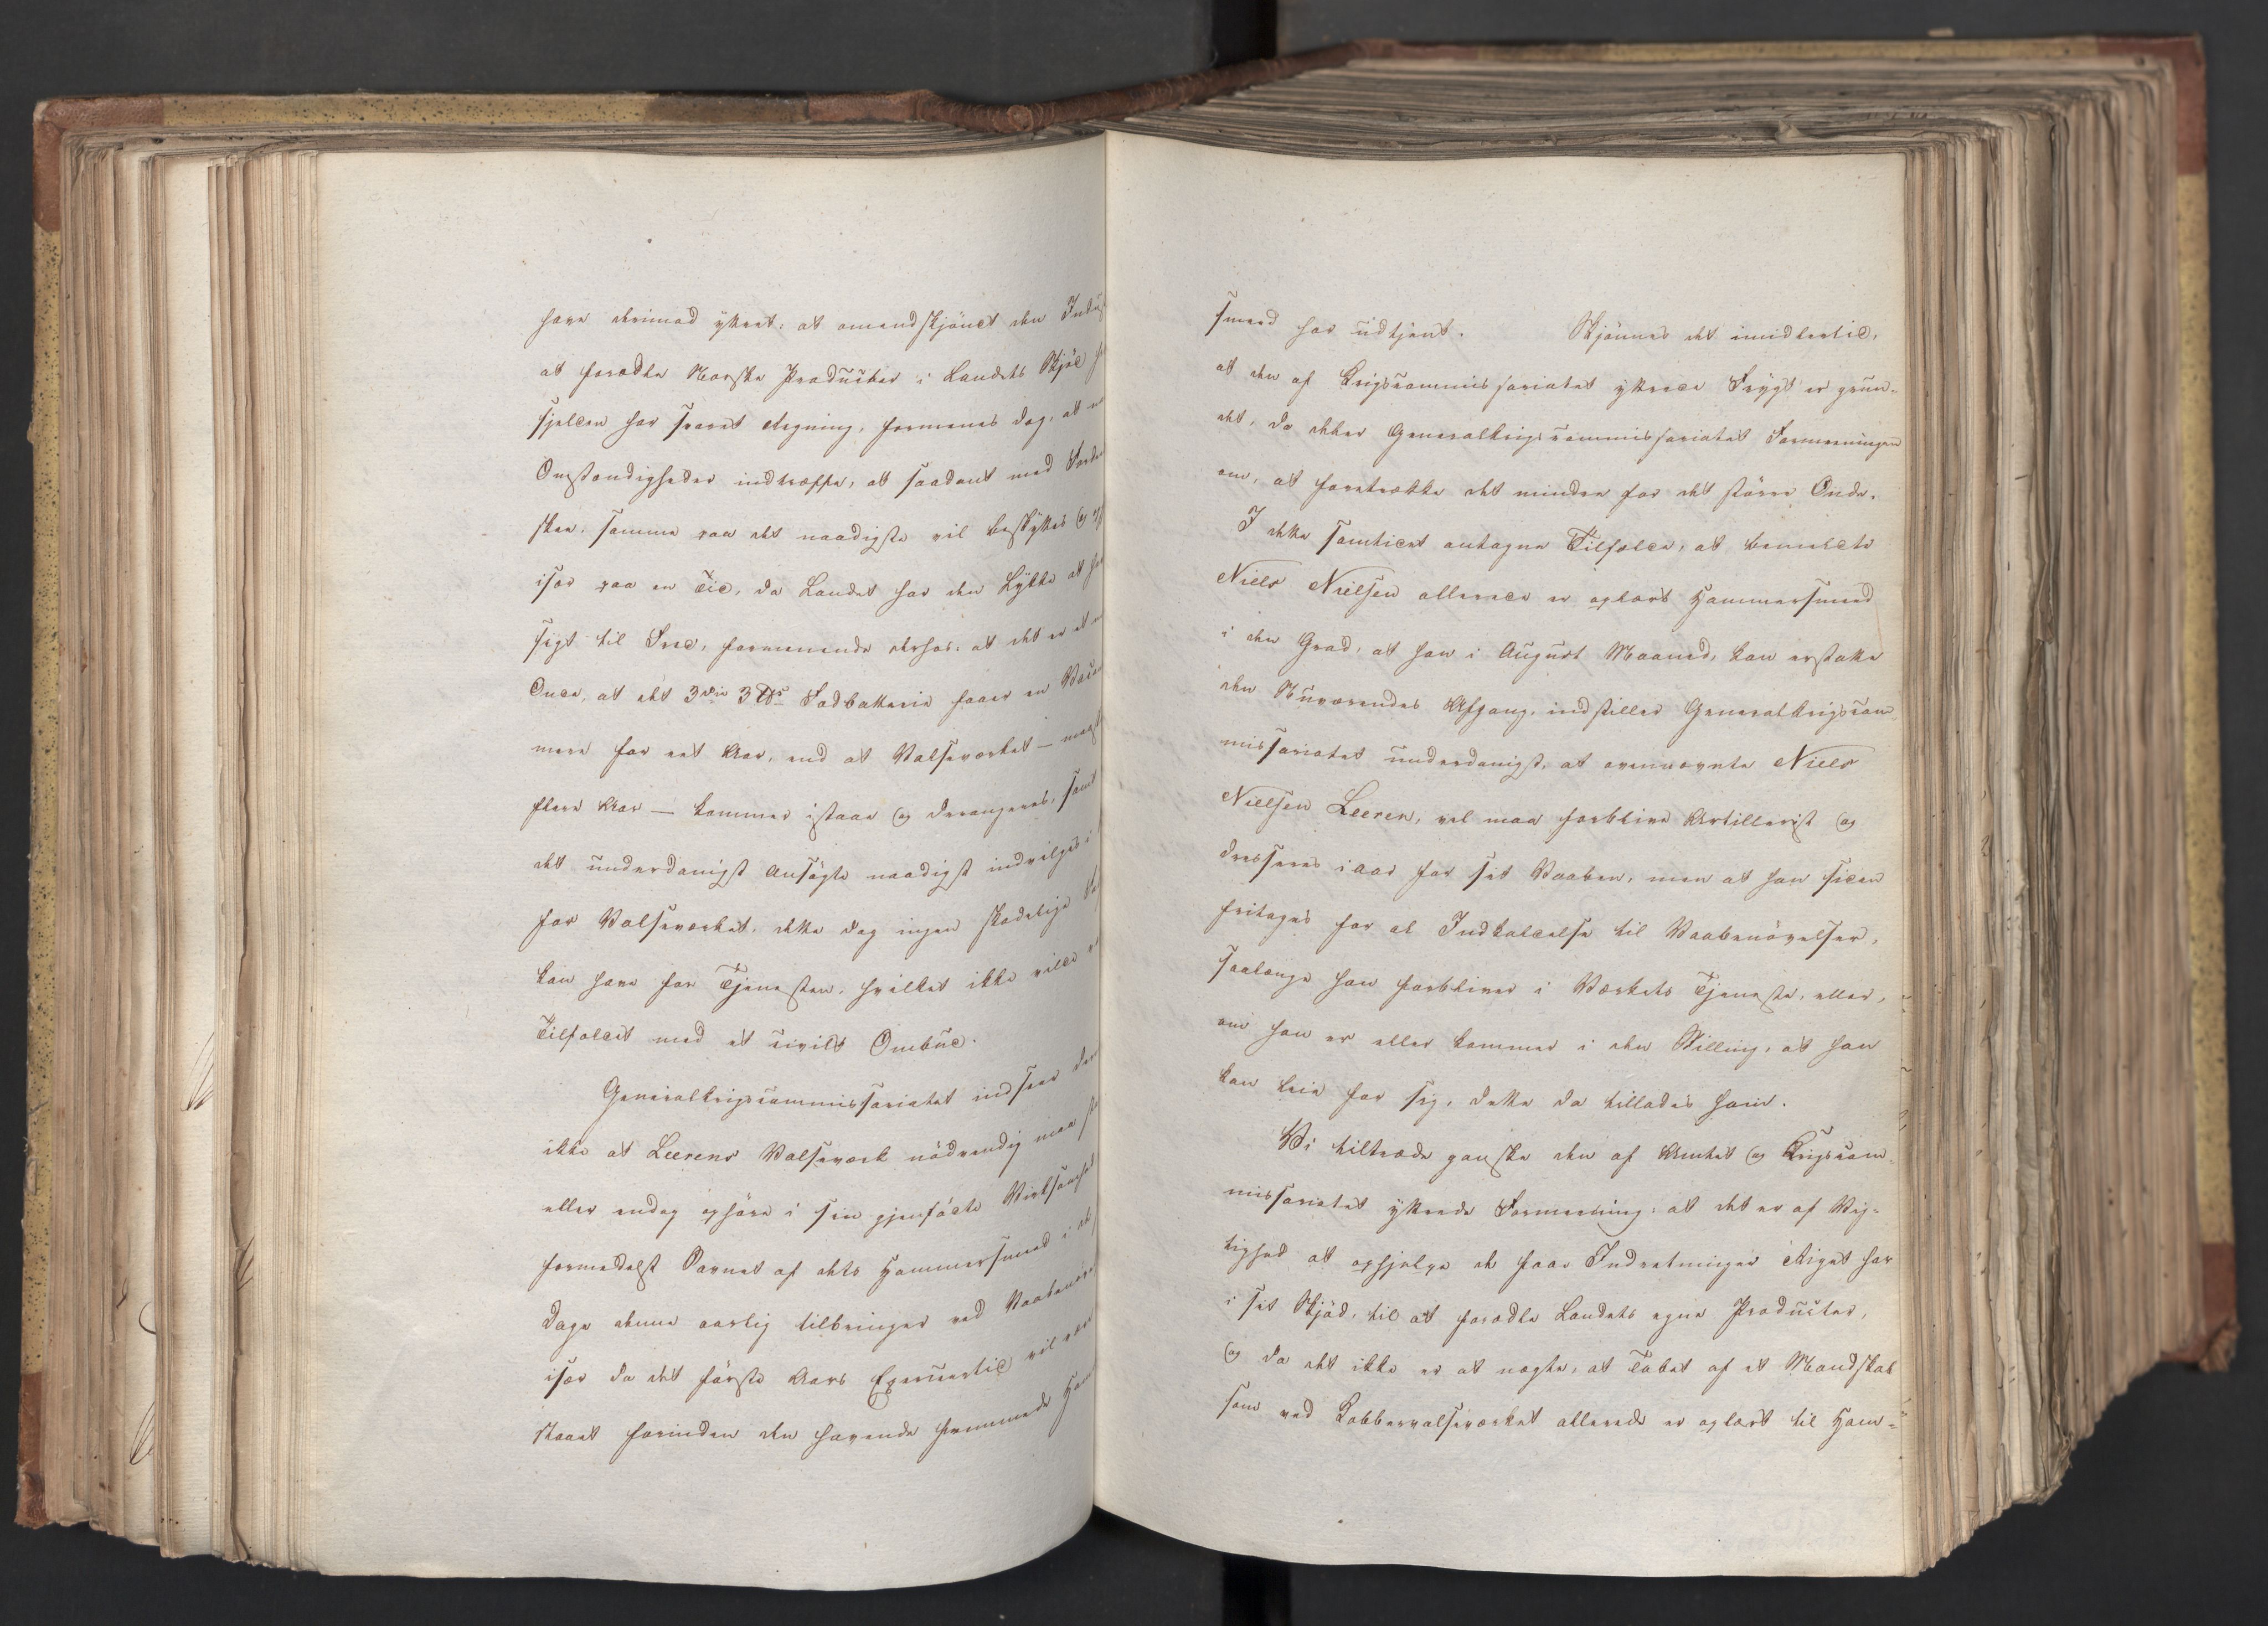 have derimod yttret, at omendskjönt den Indus
at foredle Norske Producter i Landets Skjöd
sjelden har svaret Regning, formenes dog, at
Omstændigheder indtræffe, at saadant med Forde
skee, samme paa det naadigste vil beskyttes og
især paa en Tid, da Landet har den Lykke at
sigt til Fred, formenende derhos: at det er et
Onde, at det 3die 3 ℔s Fodbatterie faaer en
mere for eet Aar, end at Valseværket –
flere Aar – kommer istaae og derangeres, samt
det underdanigst ansögte naadigst indvilges i
for Valseværket, dette dog ingen skadelige
kan have for Tjenesten, hvilket ikke vilde
Tilfældet med et civilt Ombud.
Generalkrigscommissariatet indseer
ikke at Leerens Valseværk nödvendig maa
eller endog ophöre i sin gjenfödte Virksomhed
formedelst Savnet af dets Hammersmed i de
Dage denne aarlig tilbringer ved Vaabenöve
især da det förste Aars Exerceertid vil være
staaet forinden den havende fremmede Ham
smed har udtjent. Skjönnes det imidlertid,
at den af Krigscommissariatet yttrede Frygt er grun-
det, da deler Generalkrigscommissariatet Formeeningen
om, at foretrække det mindre for det större Onde.
I dette samtidet antagne Tilfælde, at bemeldte
Niels Nielsen allerede er oplært Hammersmed
i den Grad, at han i August Maaned, kan erstatte
den Nuværendes Afgang, indstiller Generalkrigscom
missariatet underdanigst, at ovennævnte Niels
Nielsen Leeren, vel maa forblive Artillerist og
dresseres iaar for sit Vaaben, men at han siden
fritages for al Indkaldelse til Vaabenövelser,
saalænge han forbliver i Værkets Tjeneste, eller,
om han er eller kommer i den Stilling, at han
kan leie for sig, dette da tillades ham.
Vi tiltræde ganske den af Amtet og Krigscom-
missariatet yttrede Formeening: at det er af Vig-
tighed at ophjelpe de faae Indretninger Riget har
i sit Skjöd, til at foredle Landets egne Producter,
og da det ikke er at negte, at Tabet af et Mandskab
som ved Kobbervalseværket allerede er oplært til Ham-